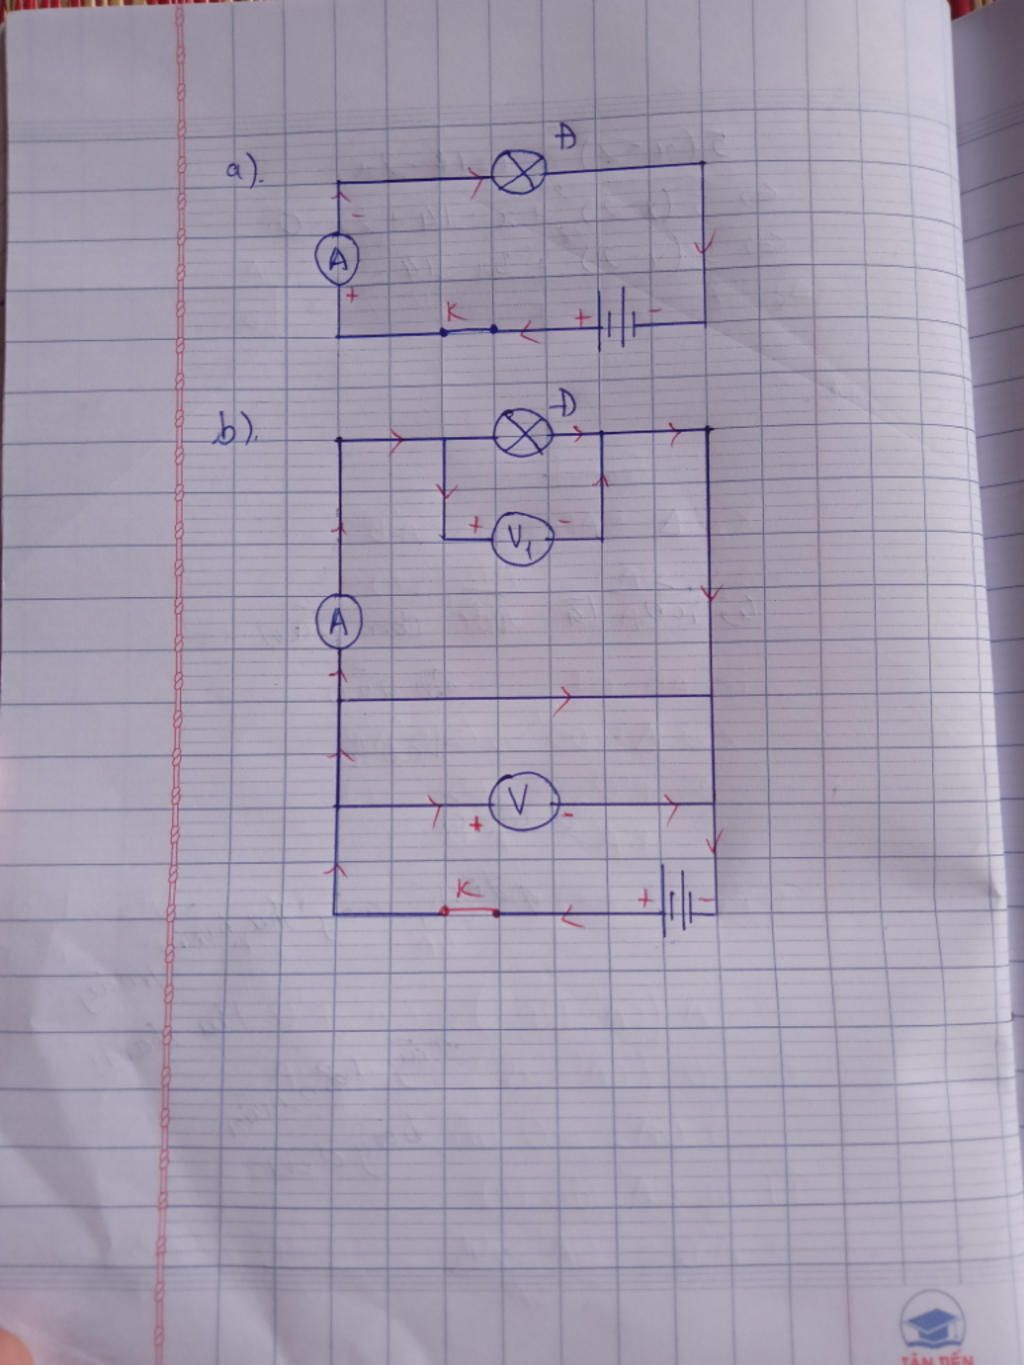 a).
Đ
-
A
+
K
+ -
b).
Đ
+ V1 -
A
V
+ -
K
+ -
TÂN TIẾN